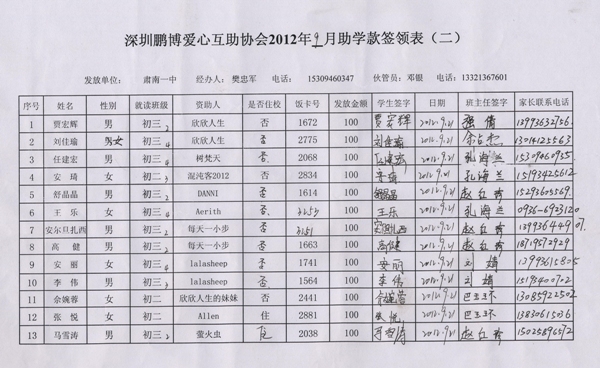 深圳鹏博爱心互助协会2012年9月助学款签领表（二）
发放单位： 肃南一中 经办人：樊忠军 电话： 15309460347 伙管员：邓银 电话：13321367601
序号 姓名 性别 就读班级 资助人 是否住校 饭卡号 发放金额 学生签字 日期 班主任签字 家长联系电话
1 贾宏辉 男 初三2 欣欣人生 否 1672 100 贾宏辉 2012.9.21 13993632756
2 刘佳瑜 男女 初三4 欣欣人生 否 2775 100 刘佳瑜 2012.9.21 13014125563
3 任建宏 男 初三4 树梵天 否 2068 100 任建宏 2012.9.21 孔海兰 15309460955
4 安琦 女 初三4 混沌客2012 否 2834 100 安琦 2012.9.21 孔海兰 15193425612
5 舒晶晶 男 初三2 DANNI 否 1614 100 舒晶晶 2012.9.21 赵红珍 15293605569
6 王乐 女 初三4 Aerith 否 100 王乐 2012.9.21 孔海兰 0936-6923120
7 安尔旦扎西 男 初三2 每天一小步 否 100 2012.9.21 赵红珍 13993644907
8 高健 男 初三2 每天一小步 否 1663 100 高健 2012.9.21 赵红珍 18719572929
9 安丽 女 初三4 lalasheep 否 1741 100 安丽 2012.9.21 刘婧 13993615805
10 李伟 男 初三3 lalasheep 否 1564 100 李伟 2012.9.21 刘婧 15193400702
11 佘婉蓉 女 初二 欣欣人生的妹妹 否 2441 100 佘婉蓉 2012.9.21 13085922502
12 张悦 女 初二 Allen 住 2881 100 张悦 2012.9.21 13830615036
13 马雪涛 男 初三2 萤火虫 2038 100 2012.9.21 赵红珍 15025896572